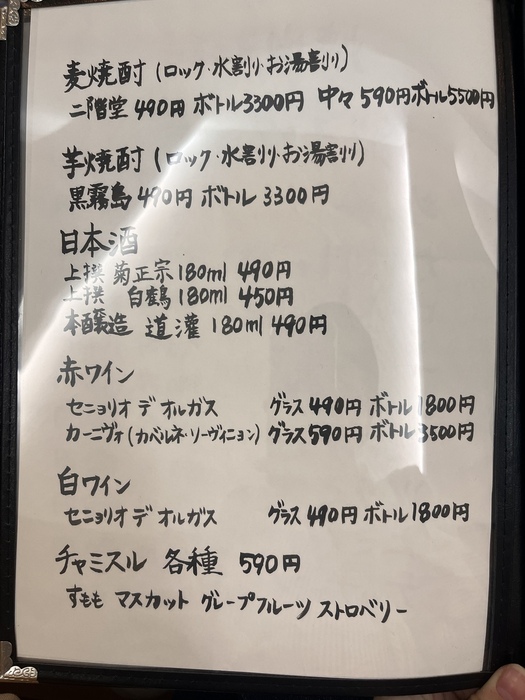 麦焼酎(ロック・水割り・お湯割り)
二階堂 490円 ボトル3300円 中々 590円 ボトル5500円
芋焼酎(ロック・水割り・お湯割り)
黒霧島 490円 ボトル 3300円
日本酒
上撰 菊正宗 180ml 490円
上撰 白鶴 180ml 450円
本醸造 道灌 180ml 490円
赤ワイン
セニョリオ デ オルガス グラス 490円 ボトル 1800円
カーニヴォ(カベルネ・ソーヴィニョン) グラス 590円 ボトル 3500円
白ワイン
セニョリオ デ オルガス グラス 490円 ボトル 1800円
チャミスル 各種 590円
すもも マスカット グレープフルーツ ストロベリー